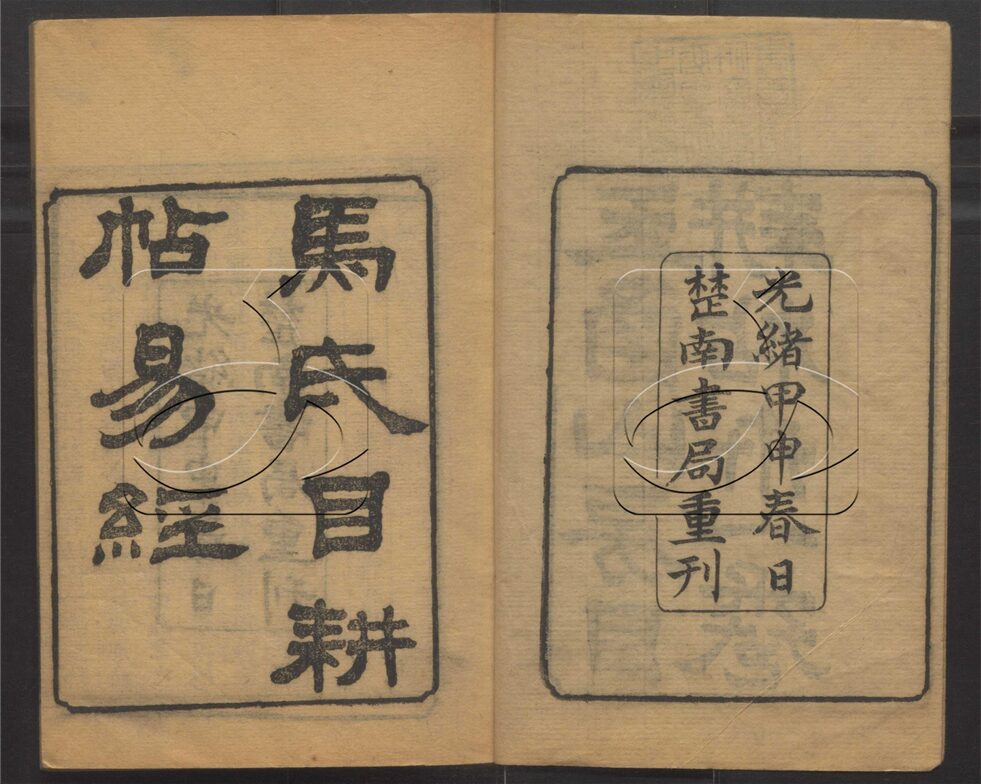 光緒甲申春日
楚南書局重刊
馬氏目耕
帖易經